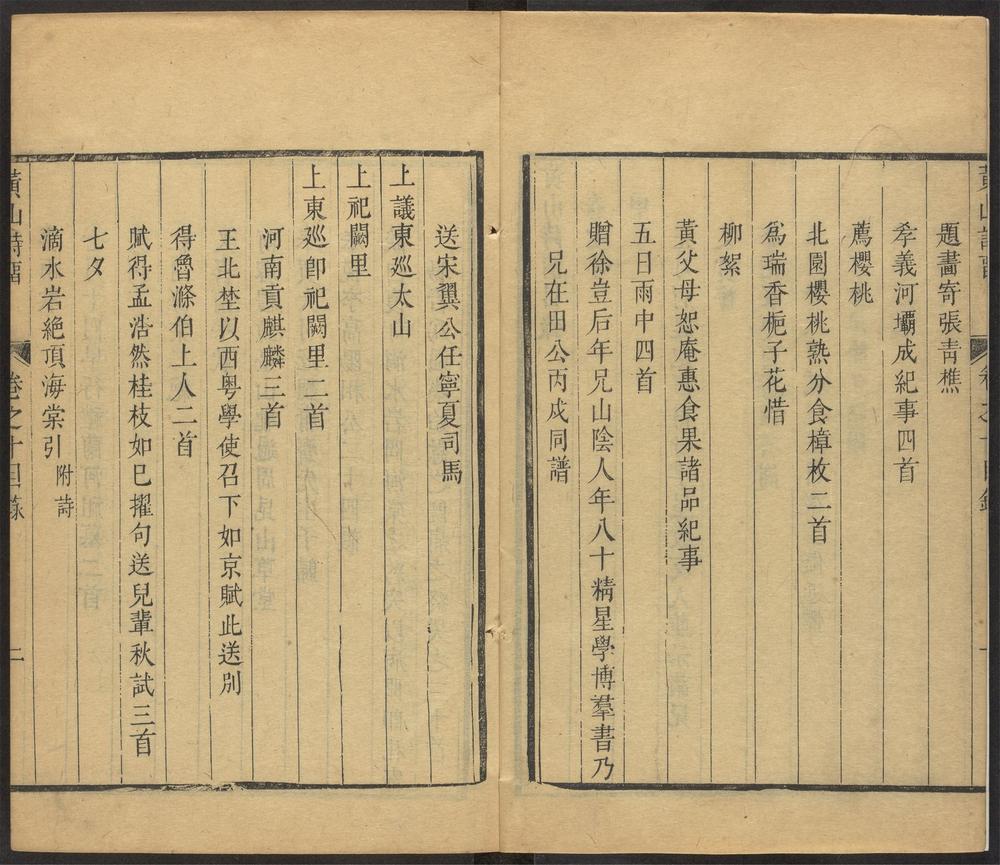 題畫寄張青樵
孝義河壩成紀事四首
薦櫻桃
北園櫻桃熟分食樟枚二首
爲瑞香梔子花惜
柳絮
黃父母恕庵惠食果諸品紀事
五日雨中四首
贈徐豈后年兄山陰人年八十精星學博羣書乃
兄在田公丙戍同譜
送宋翼公任寧夏司馬
上議東巡太山
上祀闕里
上東巡卽祀闕里二首
河南貢麒麟三首
王北埜以西粤學使召下如京賦此送別
得魯滌伯上人二首
賦得孟浩然桂枝如已擢句送兒輩秋試三首
七夕
滴水岩絶頂海棠引 附詩
卷之十目錄
二